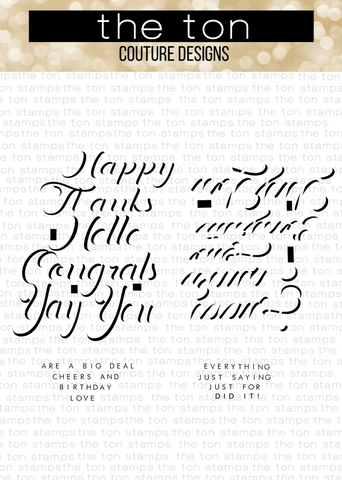 the ton
COUTURE DESIGNS
Happy
Thanks
Hello
Congrats
Yay You
ARE A BIG DEAL
CHEERS AND
BIRTHDAY
LOVE
EVERYTHING
JUST SAYING
JUST FOR
DID IT!